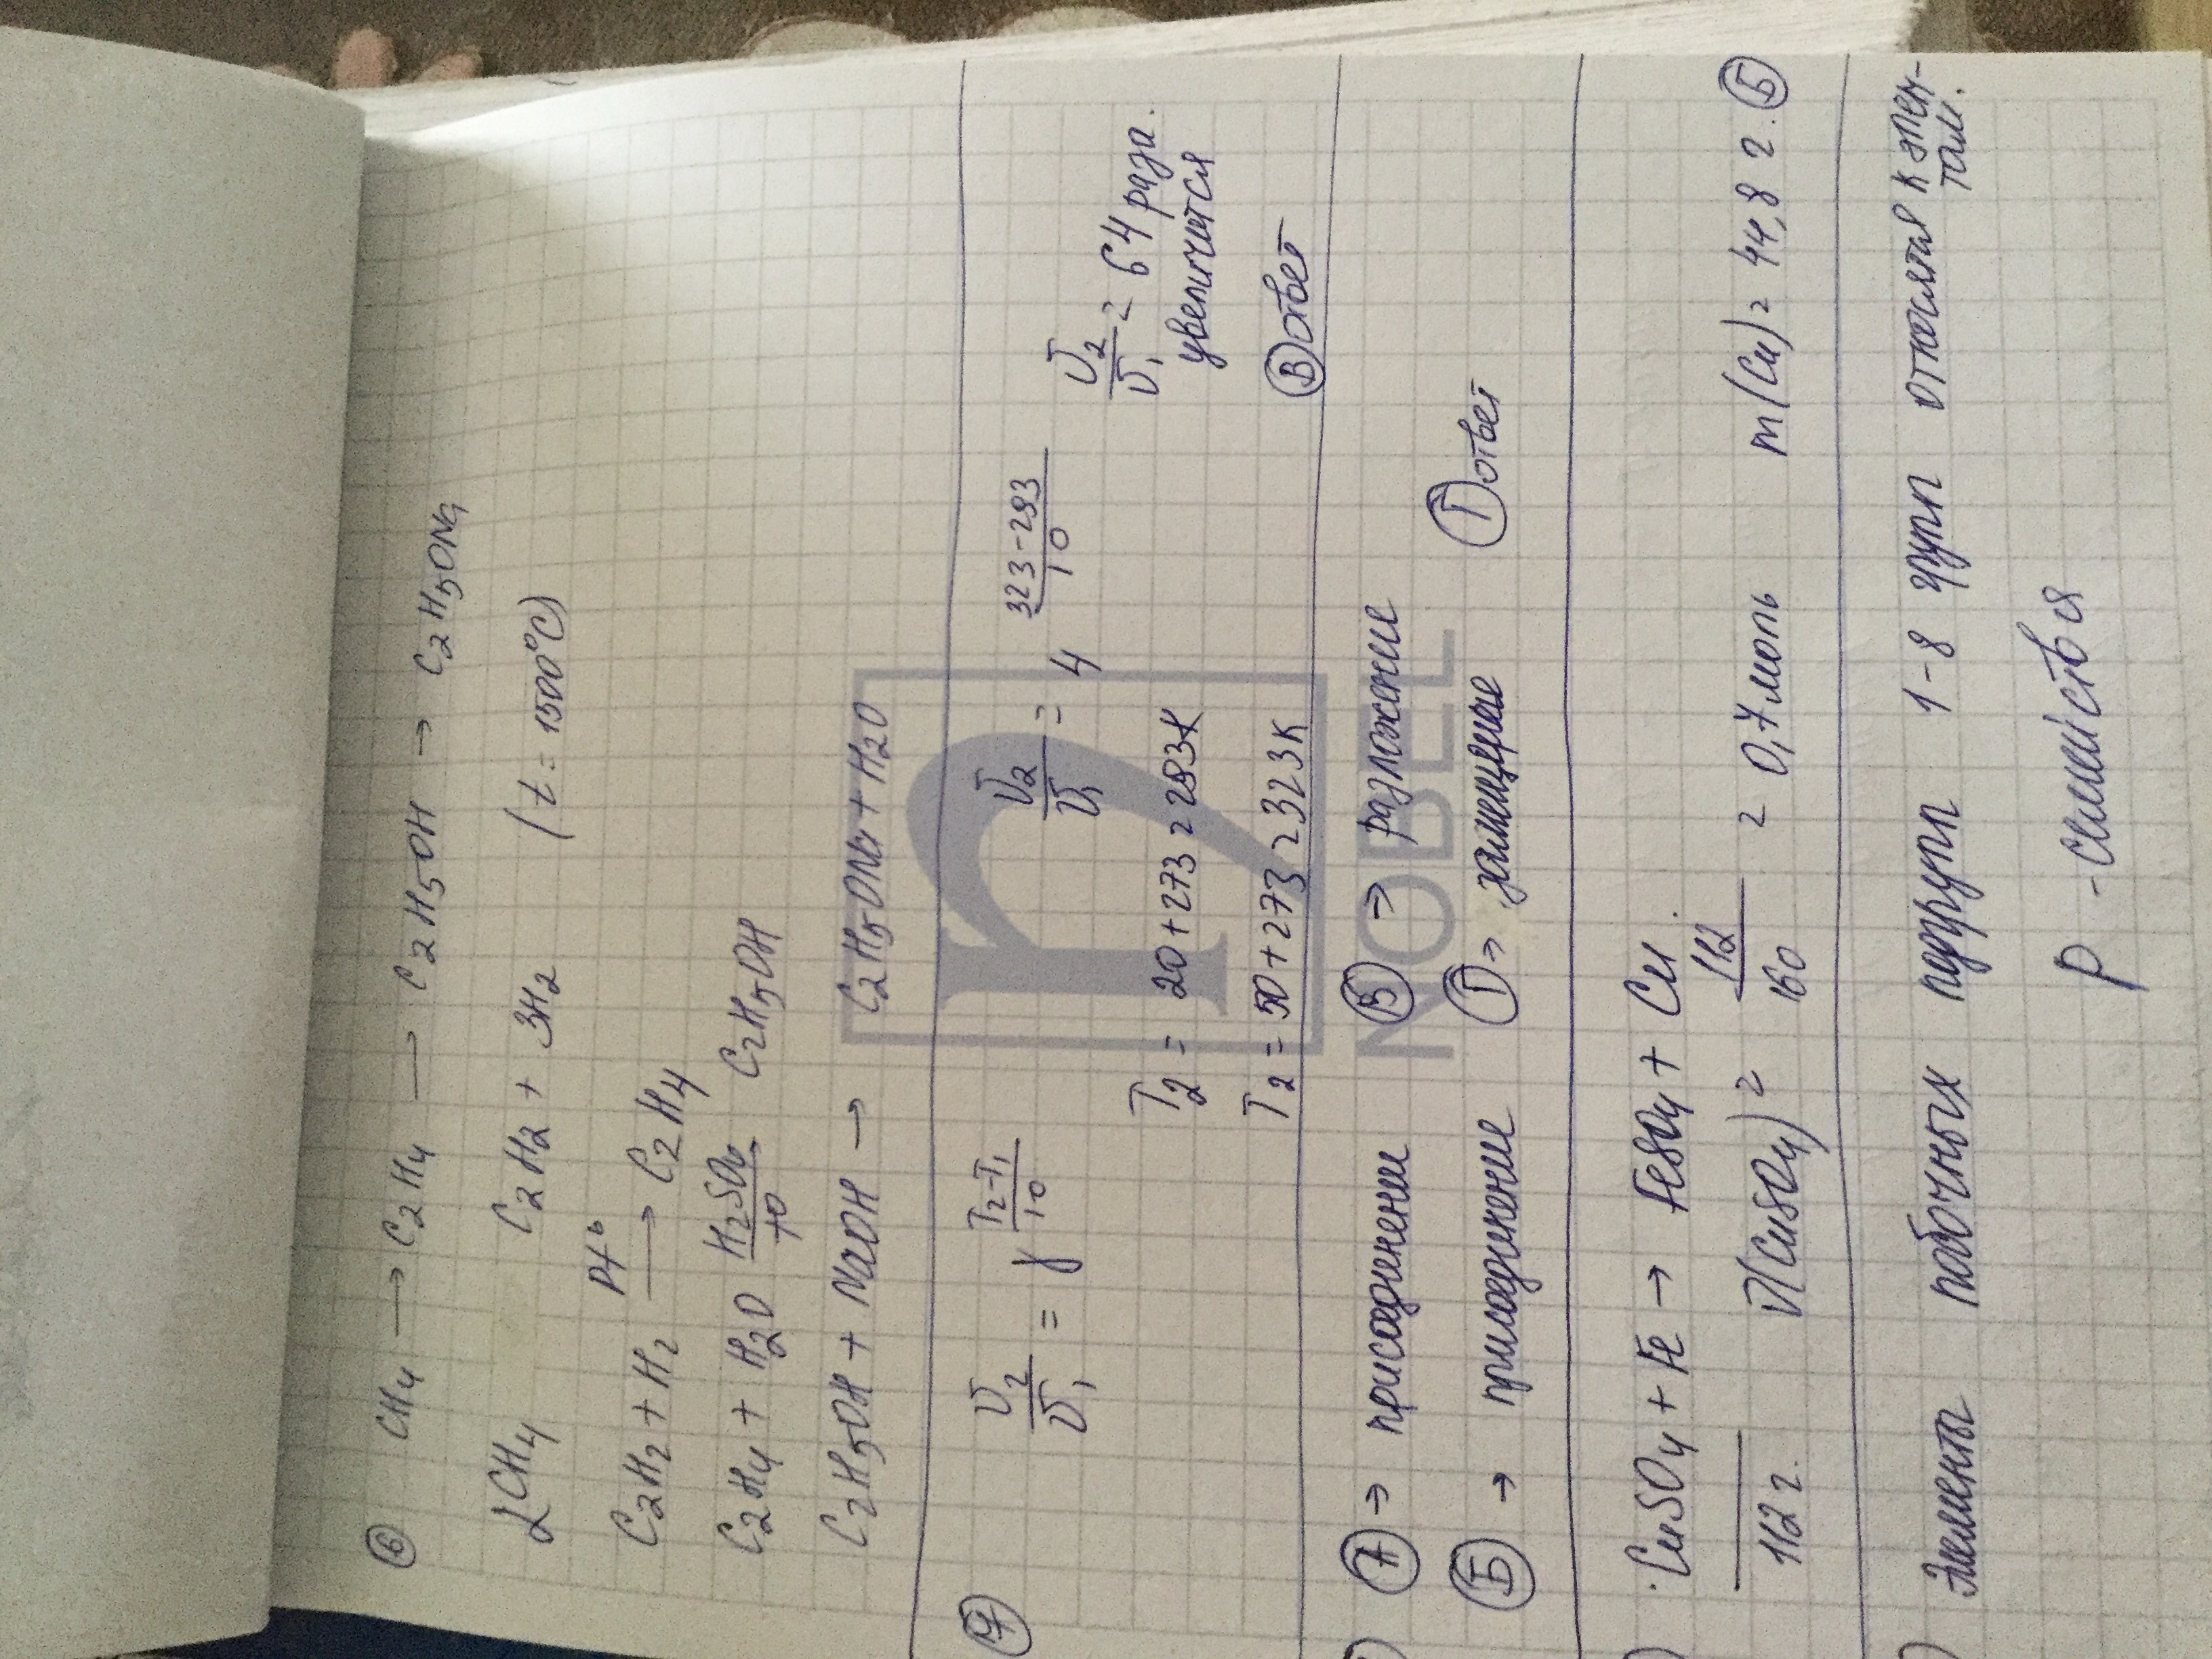 ⑥ CH4 → C2H4 — C2H5OH → C2H5ONa
2CH4 C2H2 + 3H2 (t = 1500°C)
C2H2 + H2 Pt° → C2H4
C2H4 + H2O H2SO4 t° C2H5OH
C2H5OH + NaOH → C2H5ONa + H2O
⑦ U2/U1 = γ T2-T1/10 U2/U1 = 4 323-293/10 U2/U1 = 64 раза.
увеличится
T2 = 20+273 = 293K
T2 = 50+273 = 323K Ⓑ ответ
Ⓐ → присоединении Ⓑ → разложение
Ⓑ → присоединение Ⓓ → замещение Ⓘ ответ
CuSO4 + Fe → FeSO4 + Cu.
112 г. ν(CuSO4) = 112/160 = 0,7 моль m(Cu) = 44,8 г. Ⓑ
Элементы побочных подгрупп 1-8 групп относятся к элем-
там.
P - семейства
NOBEL